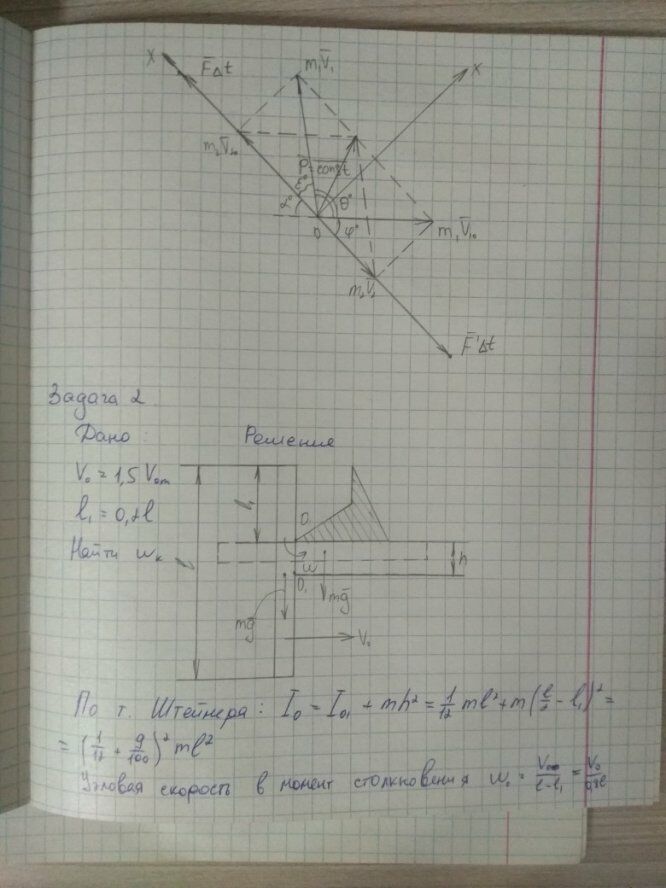 X F̅Δt m₁V̅₁ X
m₂V̅₂₀ P̅ const
α° θ° φ° m₁V̅₁₀
O
m₂V̅₂
F̅'Δt
Задача 2
Дано: Решение
V₀ = 1,5 V₀m
l₁ =
Найти ωₖ
l l₁ O ω O₁ h
mg̅ mg̅ V₀
По т. Штейнера: I₀ = I₀₁ + mh² = 1/12 ml² + m(l/2 - l₁)² =
= (1/12 + 9/100)² ml²
Угловая скорость в момент столкновения ω₀ = /l-l₁ = V₀/